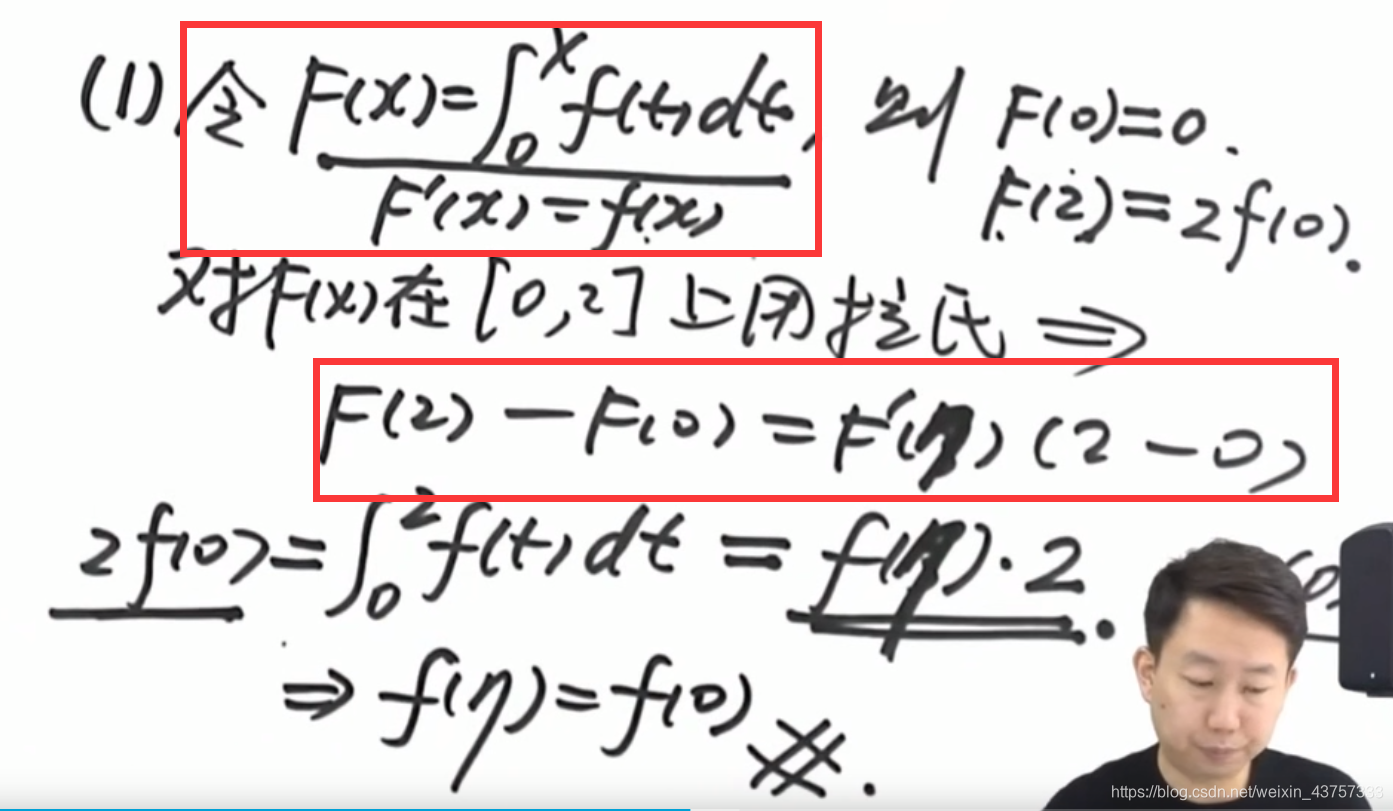 (1) 令 F(x)=∫₀ˣf(t)dt, 则 F(0)=0.
F'(x)=f(x) F(2)=2f(0).
对F(x)在[0,2]上用拉氏⇒
F(2)-F(0)=F'(η)(2-0)
2f(0)=∫₀²f(t)dt=f(η)·2.
⇒f(η)=f(0) #.
https://blog.csdn.net/weixin_43757333